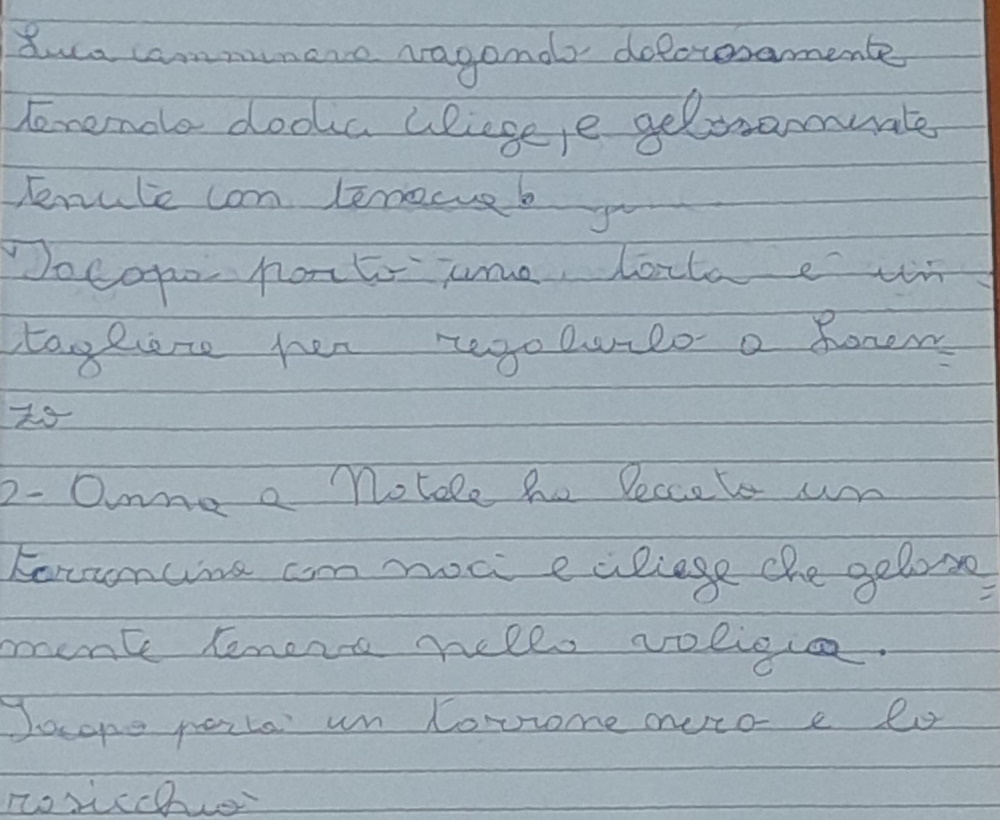 Luca camminava vagando dolorosamente
tenendo dodici ciliege, e gelosamente
tenute con
Jacopo portò una torta e un
tagliere per regalarlo a Loren=
zo
2- Anna a Natale ha leccato un
torroncino con noci e ciliege che gelosa=
mente teneva nella valigia.
Jacopo portò un torrone nero e lo
rosicchiò